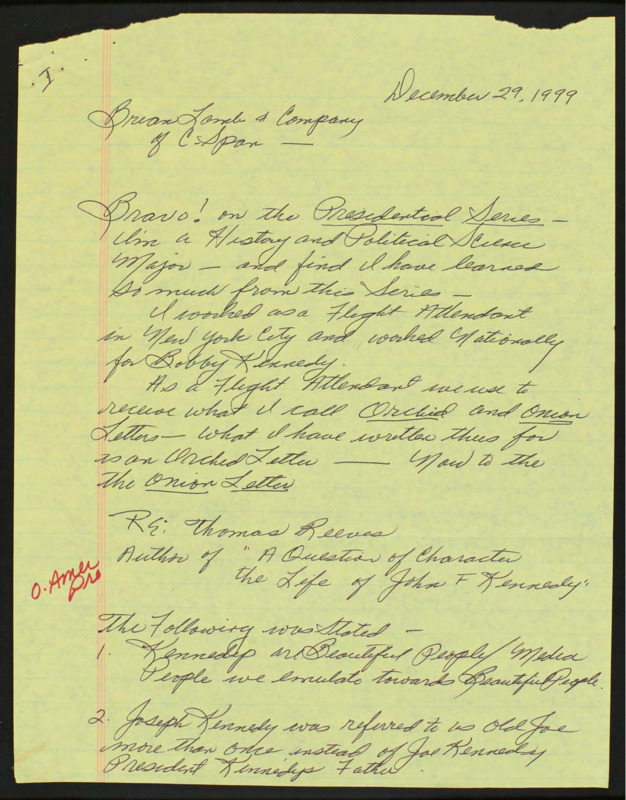 I.
December 29, 1999
Brian Lamb & Company
of C Span —
Bravo! on the Presidential Series —
I'm a History and Political Science
Major — and find I have learned
so much from this Series —
I worked as a Flight Attendant
in New York City and worked Nationally
for Bobby Kennedy.
As a Flight Attendant we use to
receive what I call Orchid and Onion
Letters — what I have written thus far
is an Orchid Letter — Now to the
the Onion Letter
RE: Thomas Reeves
Author of "A Question of Character
the Life of John F Kennedy"
O. Amer
Pro
The Following was Stated —
1. Kennedys are Beautiful People/Media
People we emulate towards Beautiful People.
2. Joseph Kennedy was referred to as Old Joe
more than once instead of Joe Kennedy
President Kennedys Father.